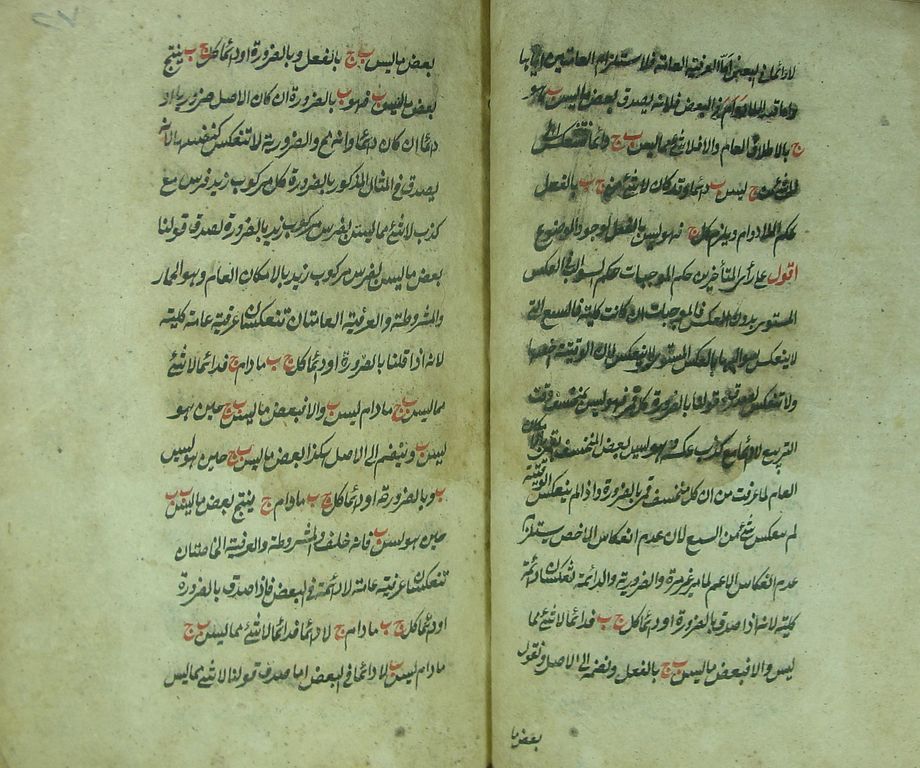 لا دائما في البعض اما العرفية العامة فلاستلزام العامتين اياها
واما قيد اللادوام في البعض فلانه يصدق بعض ما ليس ب هو
ج بالاطلاق العام والا فلا شئ مما ليس ب ج دائما فتنعكس الى
ليس ب دائما وقد كان لا شئ من ج ب بالفعل
حكم اللادوام ويلزم كل ج فهو ليس ب بالفعل لوجود الموضوع
اقول على رأى المتأخرين حكم الموجبات حكم السوالب في العكس
المستوى بدون العكس فالموجبات ان كانت كلية فالسبع التى
لا ينعكس سوالبها بالعكس المستوى لا ينعكس لان الوقتية اخصها
ولا تنعكس لصدق قولنا بالضرورة كل قمر فهو ليس بمنخسف وقت
التربيع لا دائما مع كذب عكسه وهو ليس بعض المنخسف بقمر بالامكان
العام لما عرفت من ان كل منخسف قمر بالضرورة واذا لم ينعكس الوقتية
لم ينعكس شئ من السبع لان عدم انعكاس الاخص يستلزم
عدم انعكاس الاعم لما مر غير مرة والضرورية والدائمة تنعكسان دائمة
كلية لانه اذا صدق بالضرورة او دائما كل ج ب فدائما لا شئ مما
ليس والا فبعض ما ليس ب ج بالفعل ونضمه الى الاصل ونقول
بعض ما
بعض ما ليس ب ج بالفعل وبالضرورة او دائما كل ج ب ينتج
بعض ما ليس ب فهو ب بالضرورة ان كان الاصل ضروريا او
دائما ان كان دائما وانه مح والضرورية لا تنعكس كنفسها لانه
يصدق في المثال المذكور بالضرورة كل مركوب زيد فرس مع
كذب لا شئ مما ليس بفرس مركوب زيد بالضرورة لصدق قولنا
بعض ما ليس بفرس مركوب زيد بالامكان العام وهو الحمار
والمشروطة والعرفية العامتان تنعكسان عرفية عامة كلية
لانه اذا قلنا بالضرورة او دائما كل ج ب ما دام ج فدائما لا شئ
مما ليس ب ج ما دام ليس ب والا فبعض ما ليس ب ج حين هو
ليس ب ونضم الى الاصل هكذا بعض ما ليس ب ج حين هو ليس
ب وبالضرورة او دائما كل ج ب ما دام ج ينتج بعض ما ليس ب ب
حين هو ليس ب فانه خلف والمشروطة والعرفية الخاصتان
تنعكسان عرفية عامة لا دائمة في البعض فاذا صدق بالضرورة
او دائما كل ج ب ما دام ج لا دائما فدائما لا شئ مما ليس ب ج
ما دام ليس ب لا دائما في البعض اما صدق قولنا لا شئ مما ليس